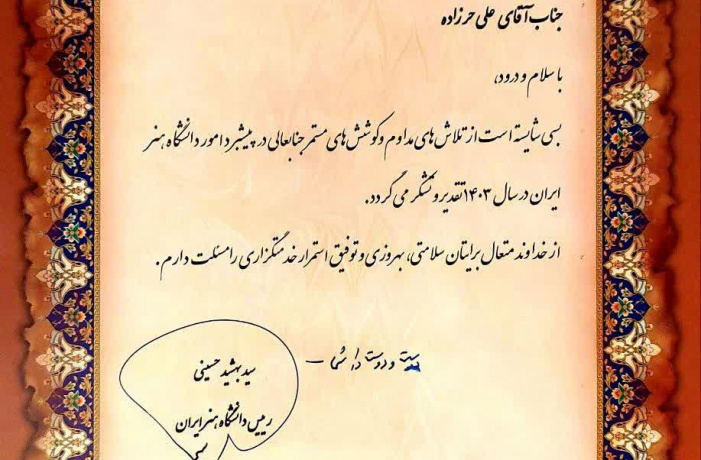 جناب آقای علی حرزاده
با سلام و درود،
بسی شایسته است از تلاش های مداوم و کوشش های مستمر جنابعالی در پیشبرد امور دانشگاه هنر
ایران در سال ۱۴۰۳ تقدیر و تشکر می گردد.
از خداوند متعال برایتان سلامتی، بهروزی و توفیق استمرار خدمتگزاری را مسئلت دارم.
و دوستدار شما
سید بهشید حسینی
رییس دانشگاه هنر ایران